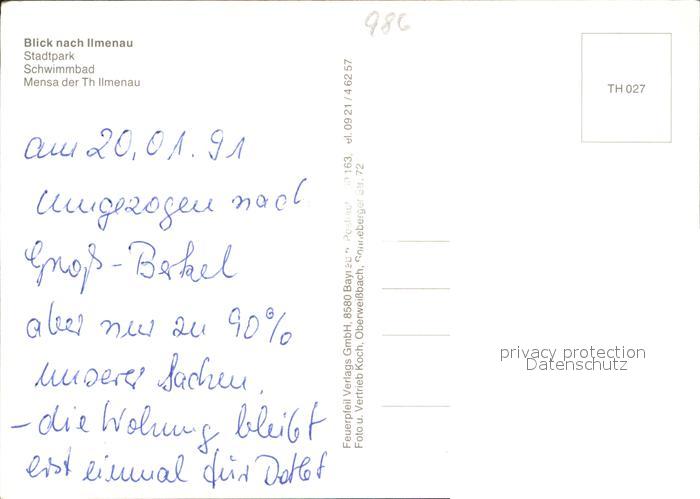 986
Blick nach Ilmenau
Stadtpark
Schwimmbad
Mensa der Th Ilmenau
TH 027
am 20.01.91
umgezogen nach
Groß-Berkel
aber nur zu 90%
unserer Sachen.
- die Wohnung bleibt
erst einmal für
Feuerpfeil Verlags GmbH, 8580 Bayreuth, 163, el. 09 21 / 4 62 57
Foto u. Vertrieb Koch, Oberweißbach, Sonneberger Str. 72
privacy protection
Datenschutz